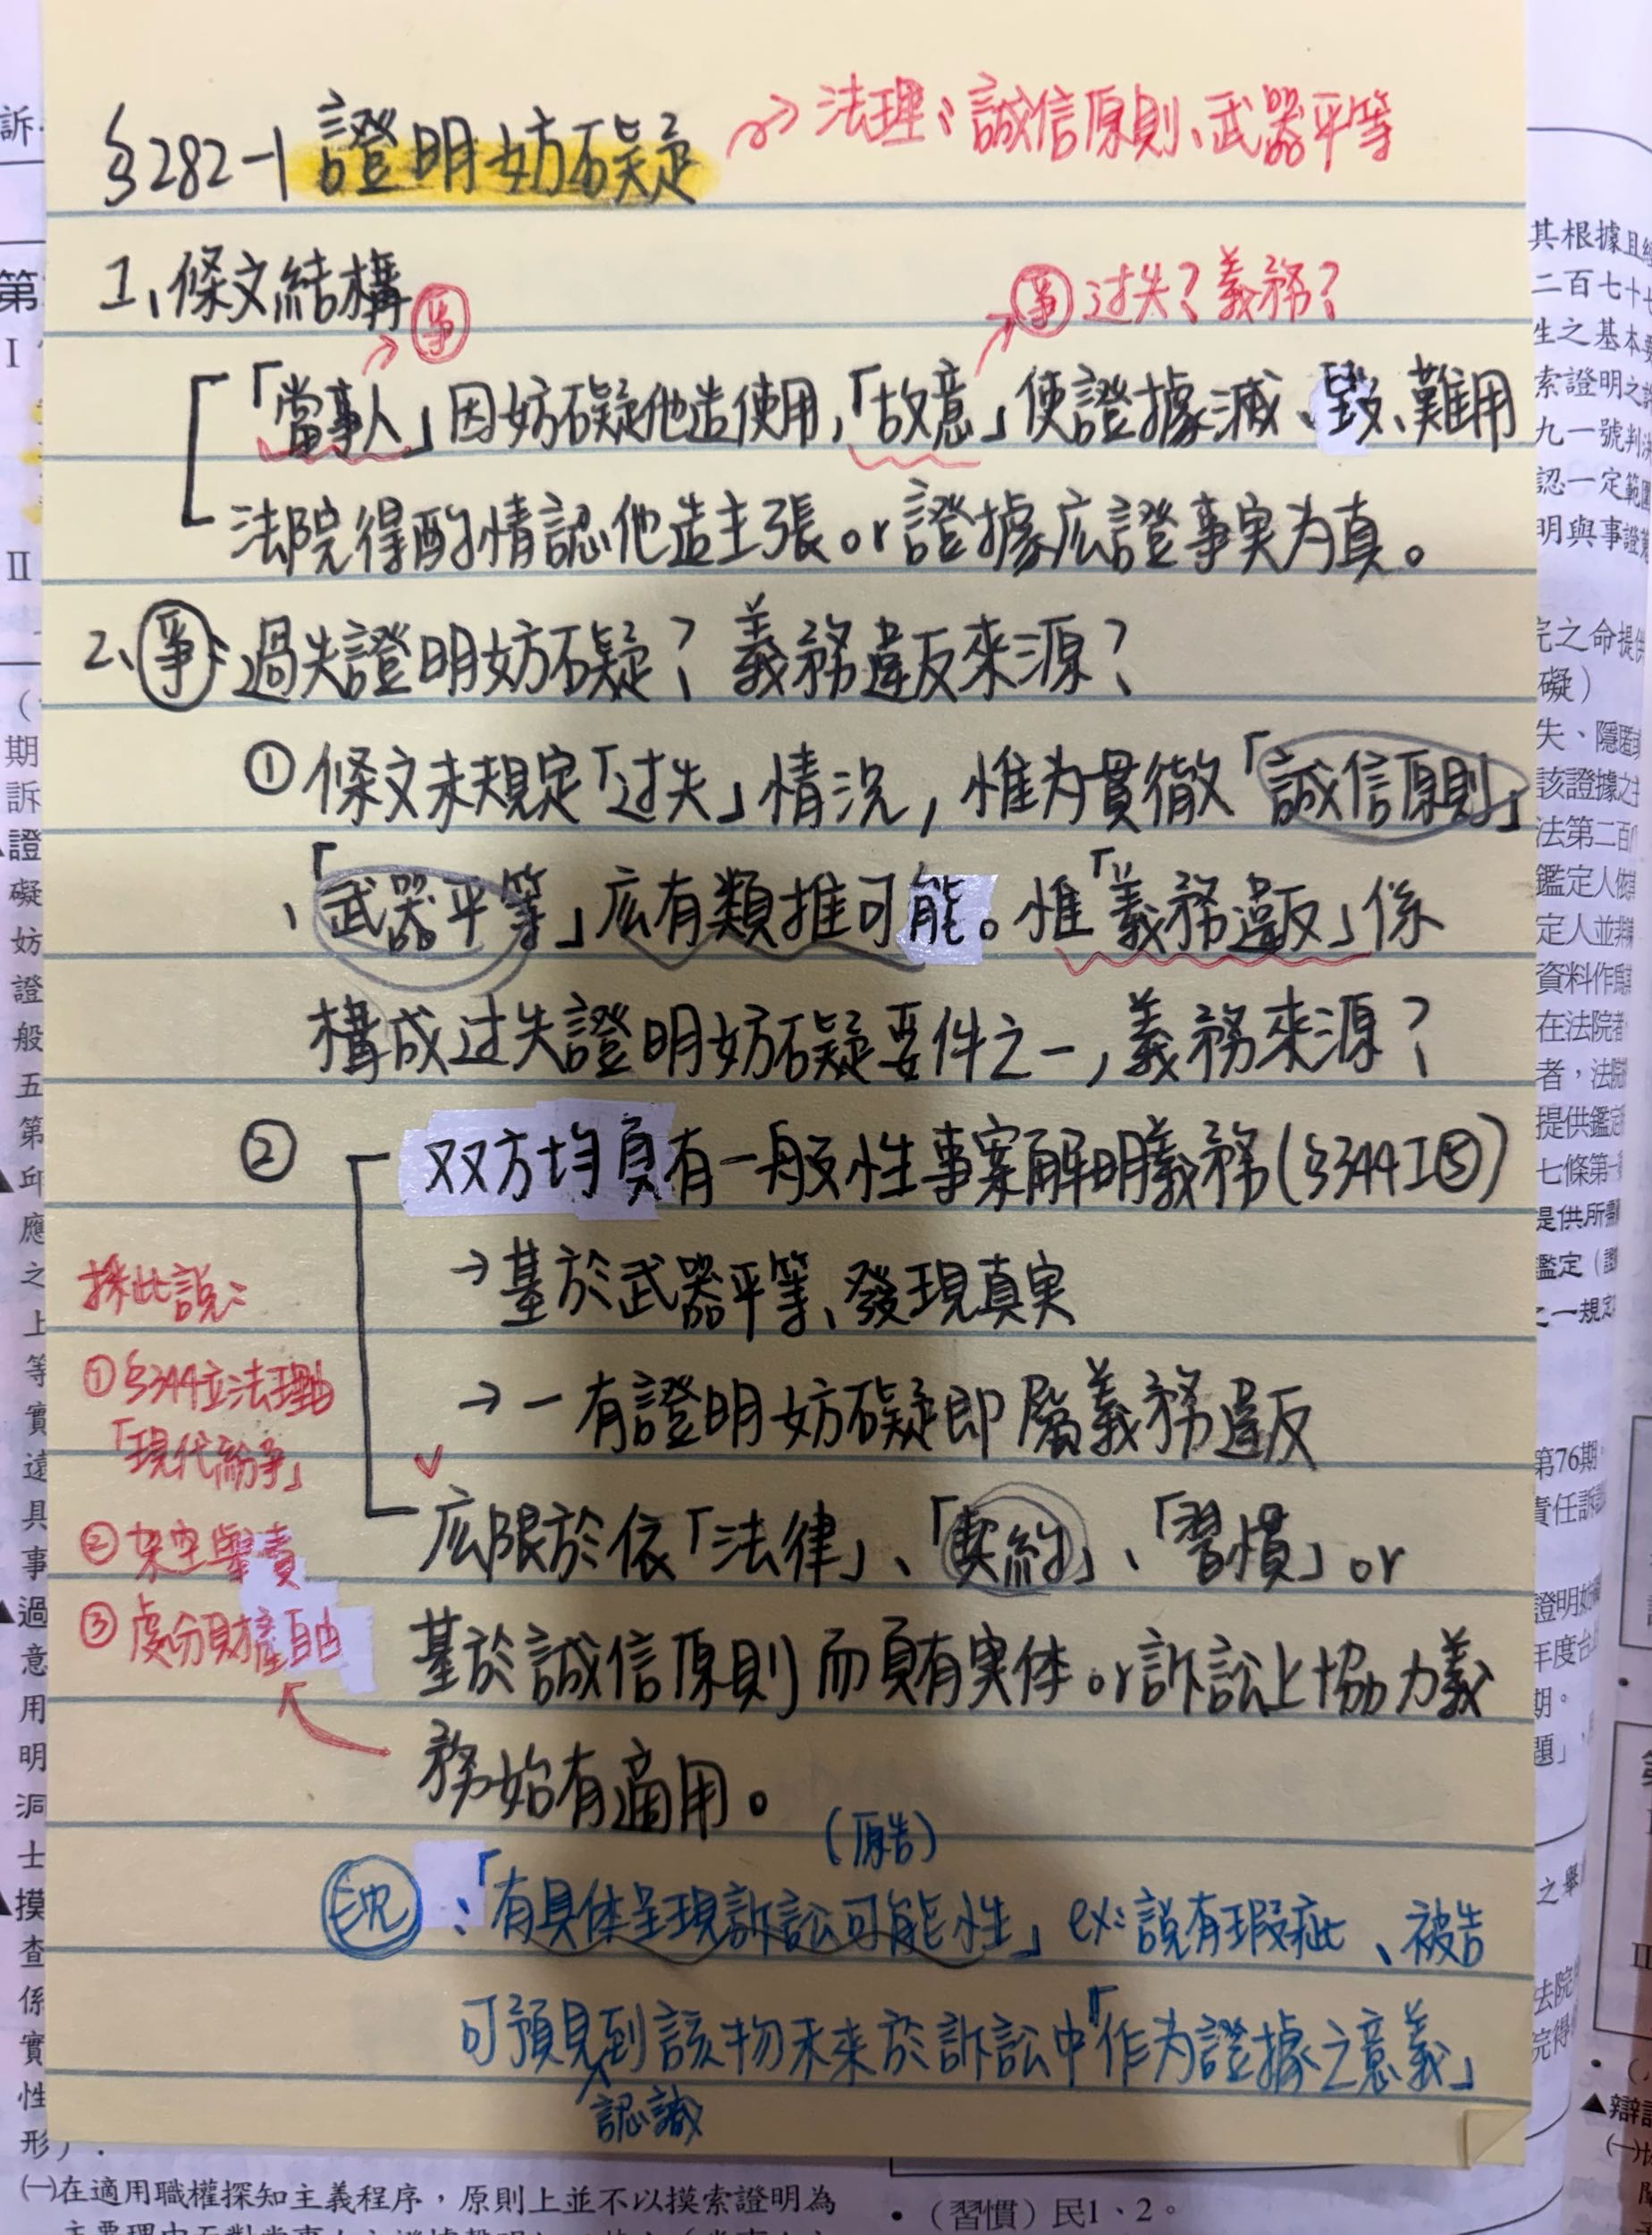 §282-1 證明妨礙 → 法理：誠信原則、武器平等
1、條文結構
爭
爭 过失？義務？
「當事人」因妨礙他造使用,「故意」使證據滅、毀、難用
法院得酌情認他造主張or證據应證事实为真。
2、爭：過失證明妨礙？義務違反來源？
① 條文未規定「过失」情況，惟为貫徹「誠信原則」
、「武器平等」应有類推可能。惟「義務違反」係
構成过失證明妨礙要件之一，義務來源？
② 双方均負有一般性事案解明義務(§344I⑤)
→基於武器平等、發現真実
→一有證明妨礙即屬義務違反
应限於依「法律」、「契約」、「習慣」or
基於誠信原則而負有実体or訴訟上協力義
務始有適用。
採此說：
① §344立法理由
「現代紛爭」
② 架空舉責
③ 處分財產自由
(原告)
沈：「有具体呈現訴訟可能性」ex:說有瑕疵、被告
可預見到該物未來於訴訟中「作为證據之意義」
認識
訴
第
I
II
期
訴
證
礙
妨
證
般
五
第
邱
應
之
上
等
實
遠
具
事
▲過
意
用
明
洞
士
▲摸
查
係
實
性
形）.
㈠在適用職權探知主義程序，原則上並不以摸索證明為
•（習慣）民1、2。
其根據且
二百七十
生之基本
索證明之
九一號判決
認一定範圍
明與事證
完之命提供
礙）
失、隱匿
該證據之主
法第二百
鑑定人
定人並非
資料作
在法院
者，法院
提供鑑定
七條第一
是供所需
鑑定（
之一規定
第76期
責任訴
證明
年度台
期。
題」
之舉
法院
完得
II
▲辯